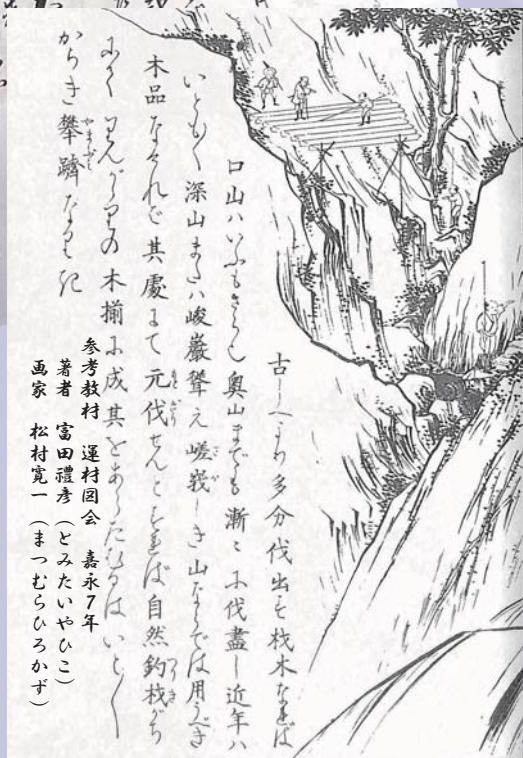 古しへより多分伐出す材木なれば
口山ハいふもさらし奥山までも漸々に伐盡し近年ハ
いとも〳〵深山または峻巖聳え嵯峩しき山ならでは用うべき
木品なけれど其處にて元伐せんとすれば自然釣伐がち
の木揃に成其をあらためるはいと〳〵
からき攀躋なりき
参考教材 運材図会 嘉永7年
著者 富田禮彦（とみたいやひこ）
画家 松村寛一（まつむらひろかず）